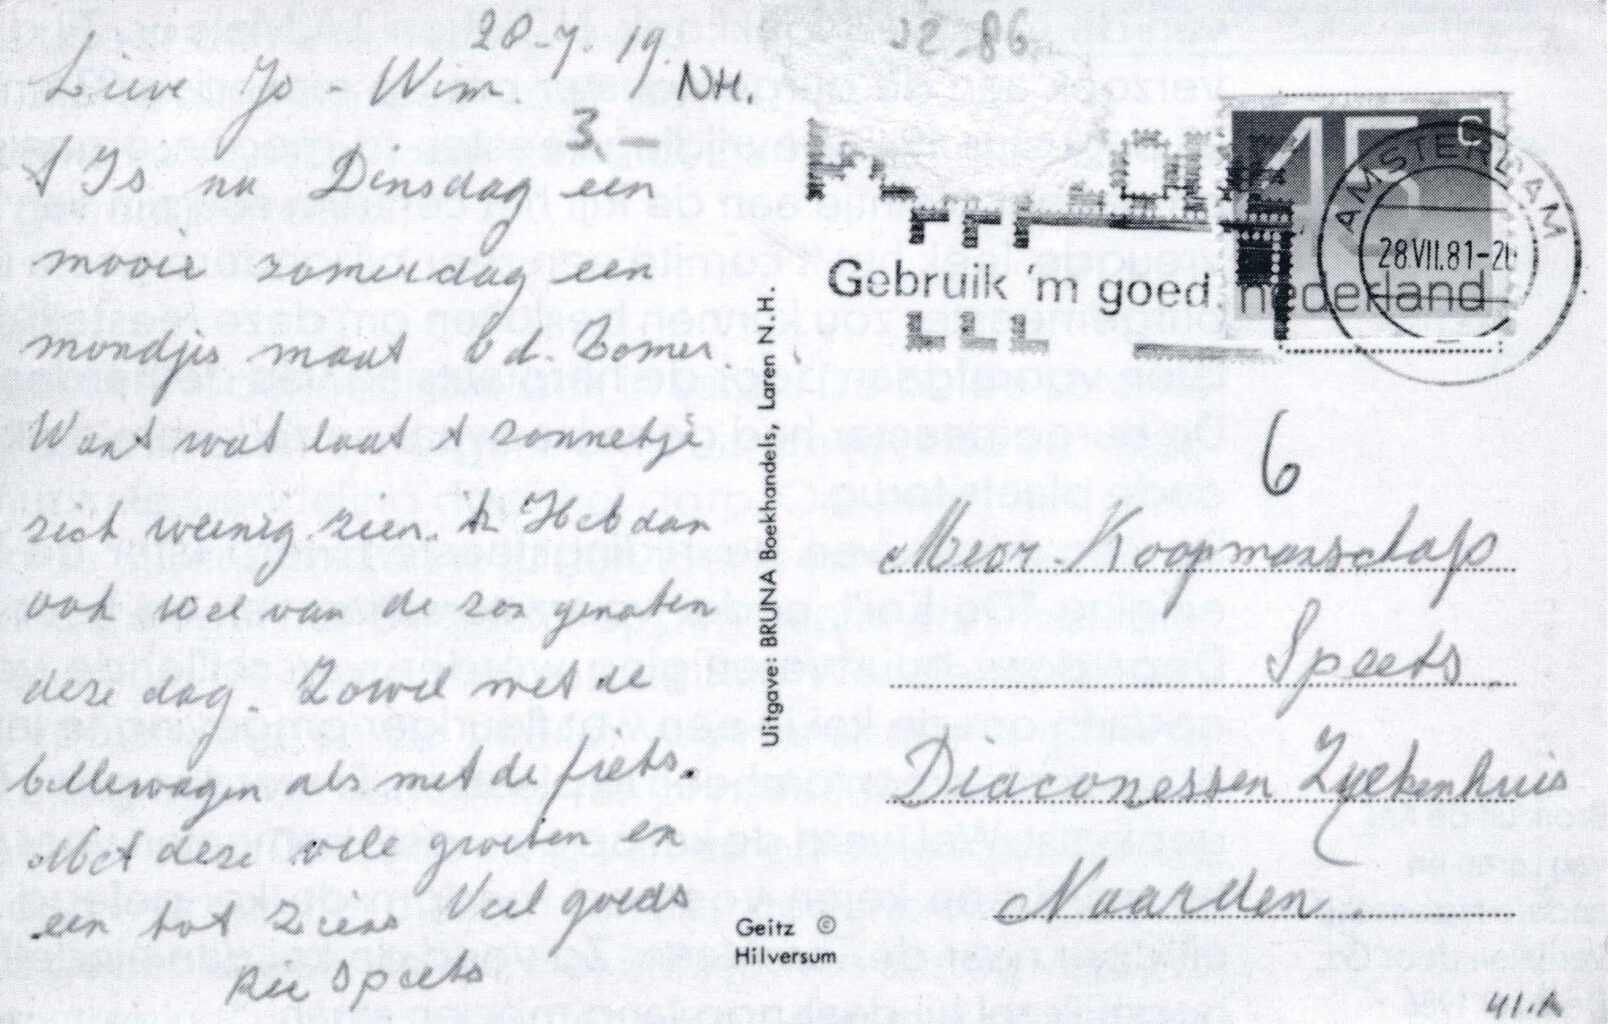 28-7.19.
12-86.
Lieve Jo - Wim.
NH.
3,-
't Is nu Dinsdag een
mooie zomerdag een
mondjes maat v d. Zomer
Want wat laat 't zonnetje
zich weinig zien. Ik Heb dan
ook wel van de zon genoten
deze dag. Zowel met de
bellewagen als met de fiets.
Met deze vele groeten en
een tot ziens Veel goeds
Rie Speets
Uitgave: BRUNA Boekhandels, Laren N.H.
Geitz ©
Hilversum
Gebruik 'm goed
45 c
nederland
AMSTERDAM
28.VII.81-20
6
Mevr. Koopmanschap
Speets.
Diaconessen Zyekenhuis
Naarden.
41.A